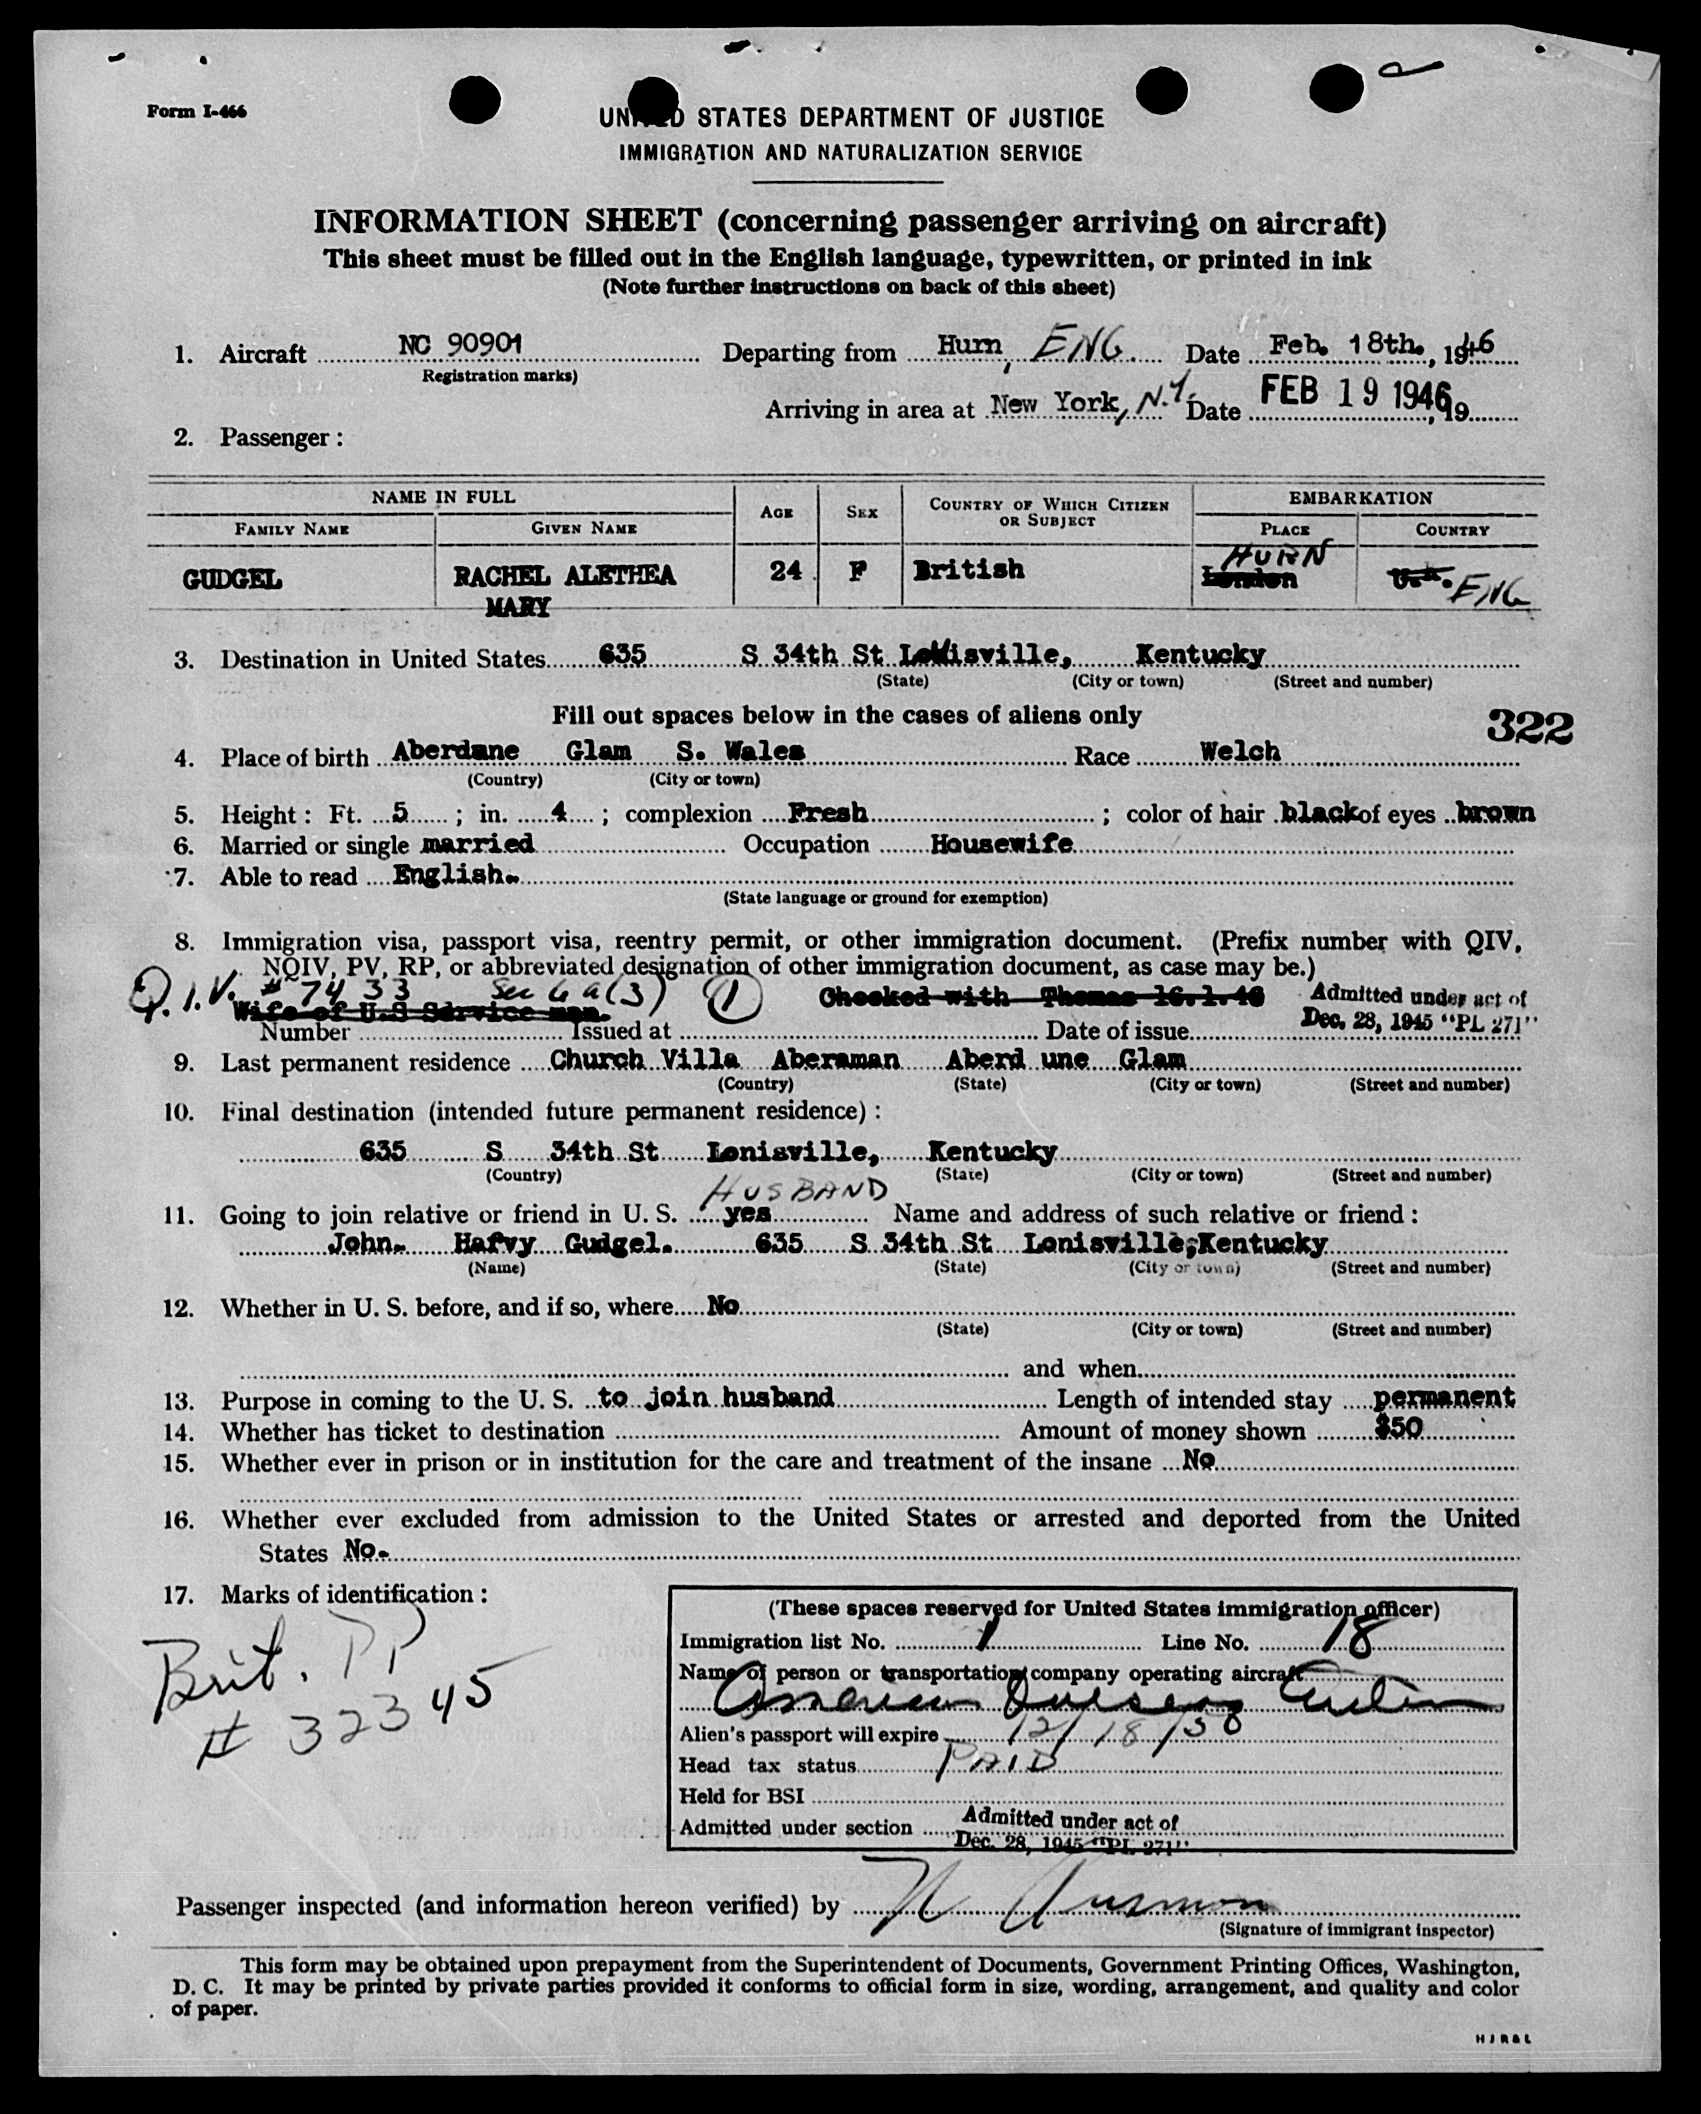 Form I-466
UNITED STATES DEPARTMENT OF JUSTICE
IMMIGRATION AND NATURALIZATION SERVICE
INFORMATION SHEET (concerning passenger arriving on aircraft)
This sheet must be filled out in the English language, typewritten, or printed in ink
(Note further instructions on back of this sheet)
1. Aircraft NC 90901 Departing from Hurn, ENG. Date Feb. 18th., 1946
Registration marks)
Arriving in area at New York, N.Y. Date FEB 19 1946, 19
2. Passenger :
NAME IN FULL AGE SEX COUNTRY OF WHICH CITIZEN OR SUBJECT EMBARKATION
FAMILY NAME GIVEN NAME PLACE COUNTRY
HURN
GUDGEL RACHEL ALETHEA 24 F British London U.K. ENG
MARY
3. Destination in United States 635 S 34th St Louisville, Kentucky
(State) (City or town) (Street and number)
Fill out spaces below in the cases of aliens only
322
4. Place of birth Aberdane Glam S. Wales Race Welch
(Country) (City or town)
5. Height : Ft. 5 ; in. 4 ; complexion Fresh ; color of hair black of eyes brown
6. Married or single married Occupation Housewife
7. Able to read English.
(State language or ground for exemption)
8. Immigration visa, passport visa, reentry permit, or other immigration document. (Prefix number with QIV,
NQIV, PV, RP, or abbreviated designation of other immigration document, as case may be.)
Q.I.V. # 7433 Sec 6 a(3) 1 Checked with Thomas 16.1.46 Admitted under act of
Wife of U.S Service man. Dec. 28, 1945 "PL 271"
Number Issued at Date of issue
9. Last permanent residence Church Villa Aberaman Aberd une Glam
(Country) (State) (City or town) (Street and number)
10. Final destination (intended future permanent residence) :
635 S 34th St Lonisville, Kentucky
(Country) (State) (City or town) (Street and number)
HUSBAND
11. Going to join relative or friend in U. S. yes Name and address of such relative or friend :
John. Harvy Gudgel. 635 S 34th St Lonisville, Kentucky
(Name) (State) (City or town) (Street and number)
12. Whether in U. S. before, and if so, where No
(State) (City or town) (Street and number)
and when
13. Purpose in coming to the U. S. to join husband Length of intended stay permanent
14. Whether has ticket to destination Amount of money shown $50
15. Whether ever in prison or in institution for the care and treatment of the insane No
16. Whether ever excluded from admission to the United States or arrested and deported from the United
States No.
17. Marks of identification :
Brit. PP
# 32345
(These spaces reserved for United States immigration officer)
Immigration list No. 1 Line No. 18
Name of person or transportation company operating aircraft
American Overseas Airlines
Alien's passport will expire 12/18/50
Head tax status PAID
Held for BSI
Admitted under section Admitted under act of
Dec. 28, 1945 "PL 271"
Passenger inspected (and information hereon verified) by
(Signature of immigrant inspector)
This form may be obtained upon prepayment from the Superintendent of Documents, Government Printing Offices, Washington,
D. C. It may be printed by private parties provided it conforms to official form in size, wording, arrangement, and quality and color
of paper.
HJR&L